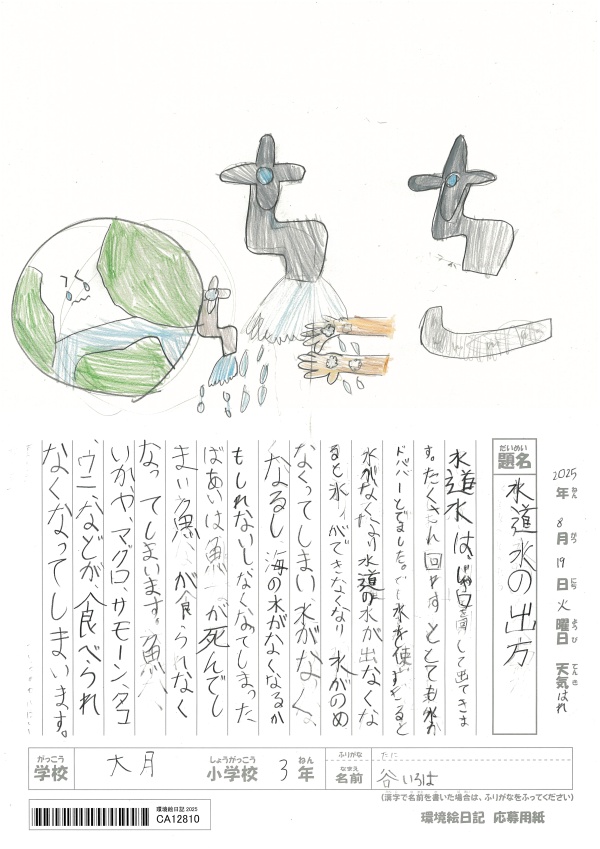 2025年ねん 8月がつ 19日にち 火曜日ようび 天気てんき はれ
題名だいめい 水道水の出方
水道水は、じゃ口して出てきま
す。たくさん回すととても水が
ドババーとでました。でも水を使すぎると
水がなくなり水道の水が出なくな
ると氷がができなくなり水がのめ
なくってしまい水がなく
なるし海の水がなくなるか
もしれないしなくなってしまった
ばあいは魚が死んでし
まい魚が食べられなく
なってしまいます。魚
いかや、マグロ、サーモン、タコ
、ウニ、などが食べられ
なくなってしまいます。
学校がっこう 大月 小学校しょうがっこう 3年ねん
ふりがな たに
名前なまえ 谷いろは
(漢字で名前を書いた場合は、ふりがなをふってください)
環境絵日記 2025
CA12810
環境絵日記 応募用紙